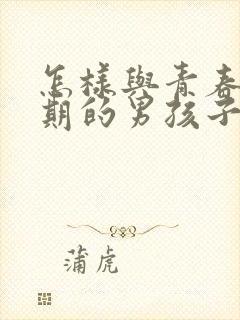 怎樣與青春
期的男孩子
蒲虎